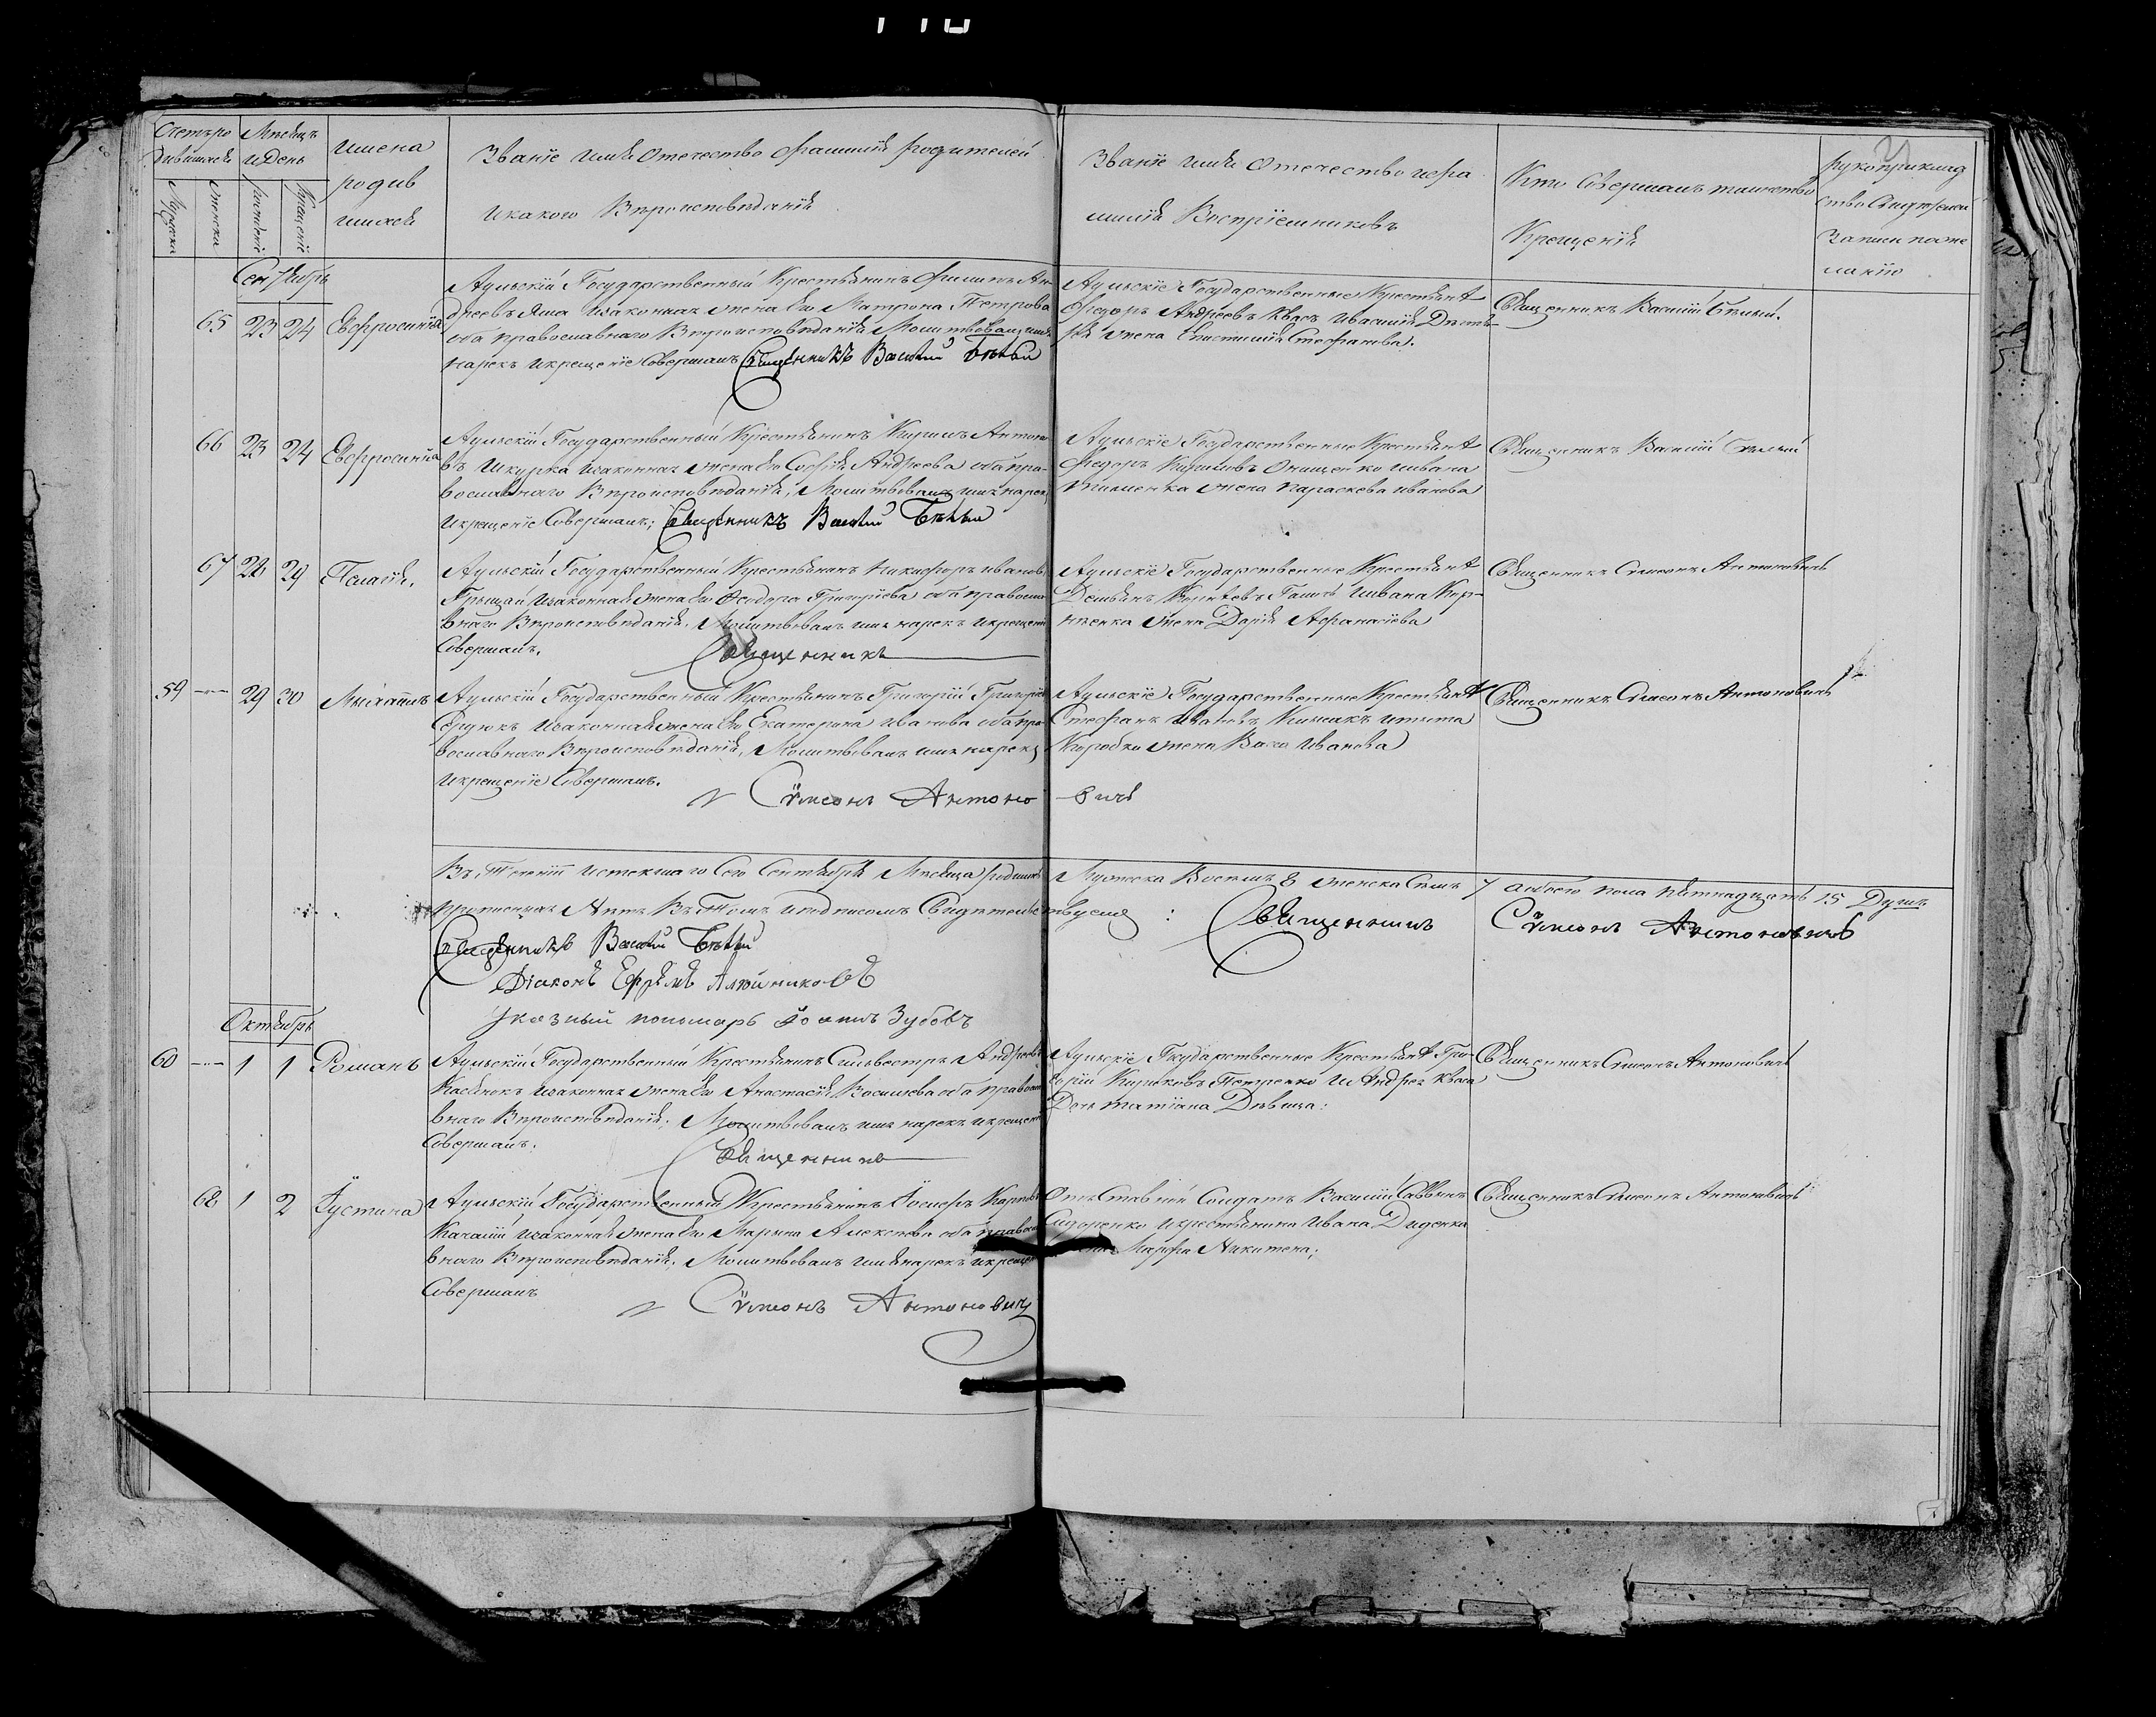 Счетъ ро
дившихся
Мѣсяцъ
и день
Имена
родив
шихся
Званіе имя отечество фамилія родителей
и какого вѣроисповѣданія
Званіе имя отечество и фа
милія воспріемниковъ
Кто совершалъ таинство
крещенія
рукоприклад
ство свидѣтелей
записи по же
ланію
Мужска
женска
рожденіе
крещеніе
Сентябрь
65 23 24 Евфросинія
Аульскій Государственный Крестьянинъ Филипъ Ан
дреевъ и законная жена его Матрона Петрова
оба православнаго вѣроисповѣданія Молитвовалъ имя
нарекъ и крещеніе совершалъ Священникъ Василій Бѣлый
Аульскіе Государственные Крестьяне
Федоръ Андреевъ Квасъ и Василія
жена Стефанова.
Священникъ Василій Бѣлый.
66 23 24 Евфросинія
Аульскій Государственный Крестьянинъ Кирилъ Антоно
въ Шкурка и законная жена его Софія Андреева оба пра
вославнаго вѣроисповѣданія, Молитвовалъ имя нарекъ
и крещеніе совершалъ; Священникъ Василій Бѣлый
Аульскіе Государственные Крестьяне
Федоръ Кириловъ Онищенко и Ивана
жена Параскева Иванова
Священникъ Василій Бѣлый
67 28 29 Пелагія.
Аульскій Государственный Крестьянинъ Никифоръ Ивановъ
Грицай и законная жена его Феодора Григоріева оба правосла
внаго вѣроисповѣданія. Молитвовалъ имя нарекъ и крещеніе
совершалъ.
Священникъ
Аульскіе Государственные Крестьяне
Демьянъ и Ивана Кор-
нѣенка жена Дарія Афанасіева
Священникъ Симеонъ Антоновичъ
59 — 29 30 Михаилъ
Аульскій Государственный Крестьянинъ Григорій Григоріевъ
Сердюкъ и законная жена его Екатерина Иванова оба пра
вославнаго вѣроисповѣданія, Молитвовалъ имя нарекъ
и крещеніе совершалъ.
Сѵмеонъ Антоно-вичъ
Аульскіе Государственные Крестьяне
Стефанъ Ивановъ и
Коробки жена Иванова
Священникъ Симеонъ Антоновичъ
Въ теченіи истекшаго сего Сентября Мѣсяца родилось Мужеска восемь 8 женска семь 7 а обоего пола пятнадцать 15 Душъ
въ томъ и подписомъ свидѣтельствуемъ: Священникъ Сѵмеонъ Антоновичъ
Священникъ Василій Бѣлый
Діаконъ Ефремъ Алейниковъ
Указный пономарь Іоаннъ Зубовъ
Октябрь
60 — 1 1 Романъ
Аульскій Государственный Крестьянинъ Сильвестръ Андреевъ
и законная жена его Анастасія Васильева оба правосла
внаго вѣроисповѣданія; Молитвовалъ имя нарекъ и крещеніе
совершалъ.
Священникъ
Аульскіе Государственные Крестьяне Гри-
горій Петренко и Андрея Кваса
Дочь татіана Дѣвица:
Священникъ Симеонъ Антоновичъ
68 1 2 Іустина
Аульскій Государственный Крестьянинъ Іосифъ Карповъ
и законная жена его Марина Алексѣева оба правосла
внаго вѣроисповѣданія; Молитвовалъ имя нарекъ и крещеніе
совершалъ
Сѵмеонъ Антоновичъ
Отставной Солдатъ Василій Саввинъ
Сидоренко и крестьянина Ивана Диденка
жена Марфа Никитена;
Священникъ Симеонъ Антоновичъ